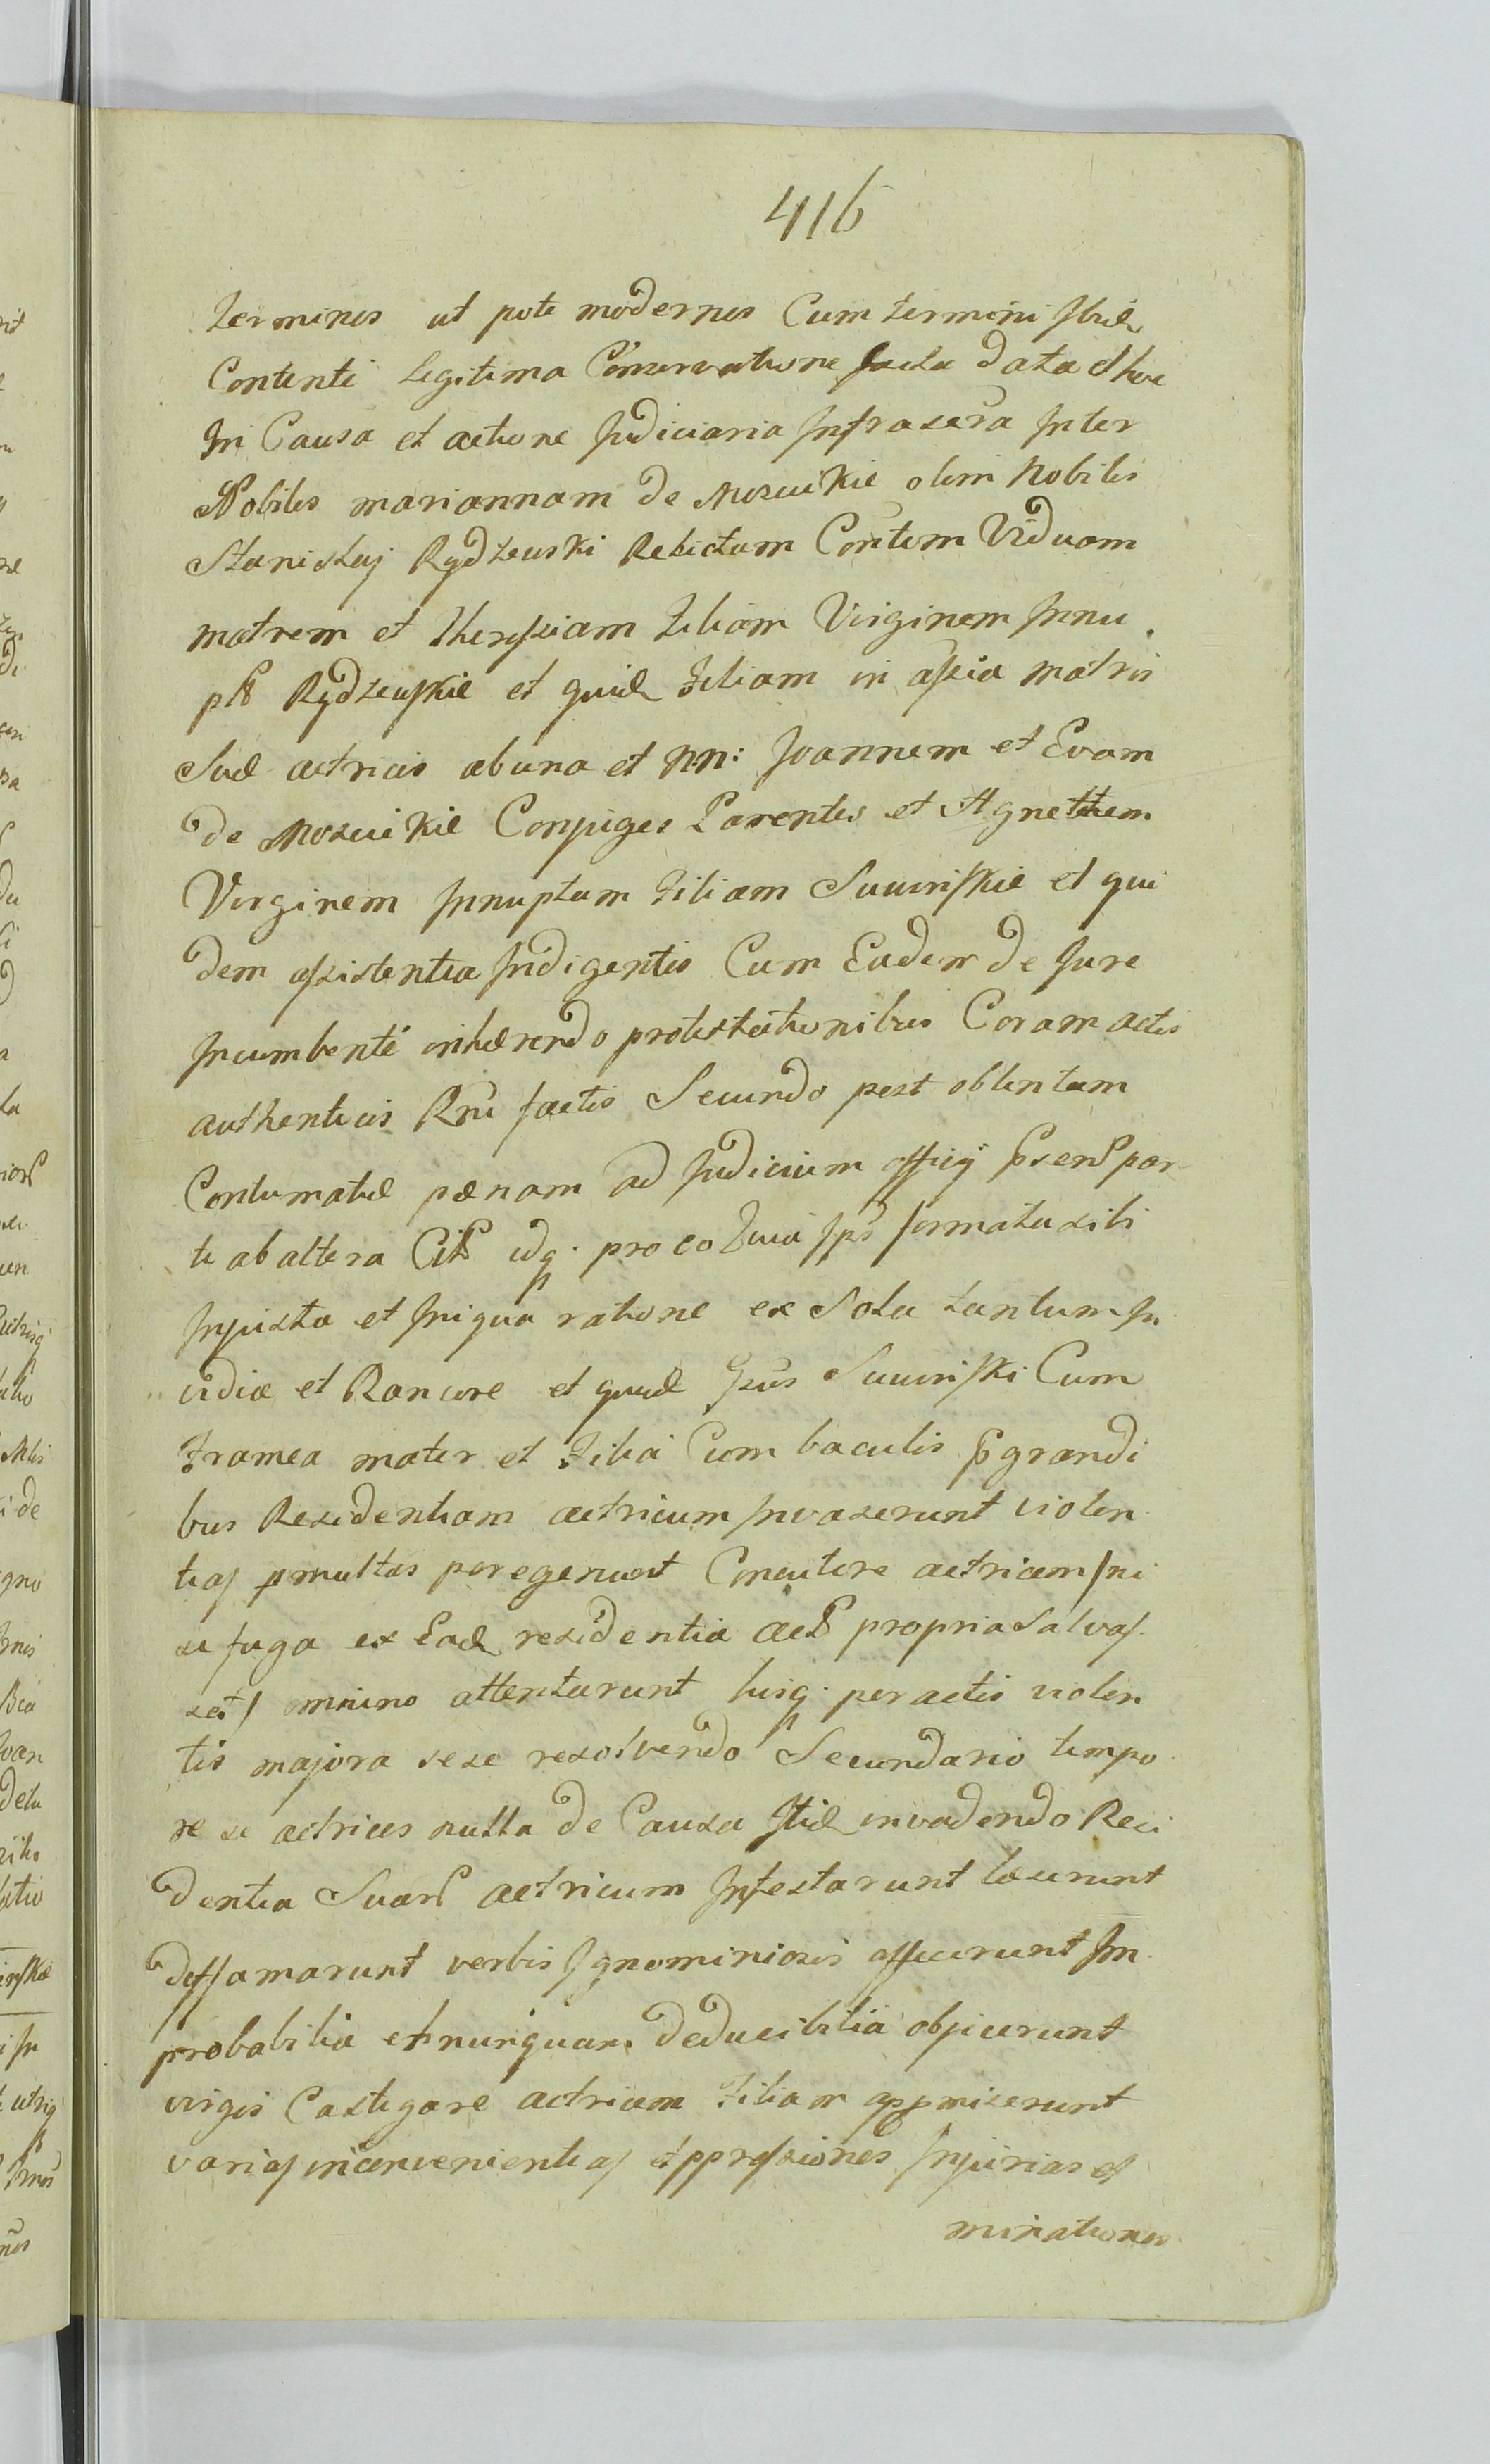 416
terminos ut pote modernos Cum termini Ibid
Contenti Legitima Conservatione facta data et hoc
In Causa et actione Judiciaria Infrascra Inter
Nobiles mariannam de Moscickie olim Nobilis
Stanislaj Rydzewski Relictam Contem Viduam
matrem et Theressiam Filiam Virginem Innu
ptas Rydzewskie et quid Filiam in assia matris
Suae actrices ab una et NN: Joannem et Evam
de Moscickie Conjuges Parentes et Agnettem
Virginem Innuptam Filiam Suwinskie et qui
dem assistentia Indigentes Cum Eadem de Jure
Incumbenti inhaerendo protestationibus Coram actis
authenticis Rni factis Secundo post obtentam
Contumatiae paenam ad Judicium officij Prsens par
te ab altera Citt idq. pro eo Quia Ips formata sibi
Injusta et Iniqua ratione ex Sola tantum In
vidia et Rancore et quid Ipus Suwinski Cum
Framea mater et Filia Cum baculis pgrandi
bus Residentiam actricum Invaserunt violen
tias pmultas peregerunt Concutere actricem /ni
si fuga ex Ead residentia propria salvas
set/ omnino attentarunt hisq. peractis violen
tis majora sese resolvendo Secundario tempo
re se actrices nulla de Causa Itid invadendo Reci
dentia Suar actricum Infestarunt laeserunt
deffamarunt verbis Ignominiosis affecerunt Im
probabilia et nunquam deducibilia objicerunt
virgis Castigare actricem Filiam appmiserunt
varias inconvenientias et oppressiones Injurias et
minationes